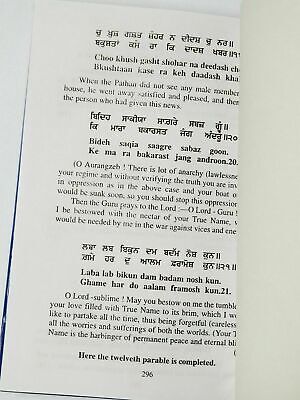 ਚੁ ਖ਼ੁਸ਼ ਗਸ਼ਤ ਸ਼ੋਹਰ ਨ ਦੀਦਸ਼ ਚੁ ਨਰ॥
ਬਕੁਸ਼ਤਾਂ ਕਸੇ ਰਾ ਕਿ ਦਾਦਸ਼ ਖ਼ਬਰ॥੧੯
Choo khush gasht shohar na deedash ch
Bkushtaan kase ra keh daadash kha
When the Pathan did not see any male member
house, he went away satisfied and pleased, and then
the person who had given this news.
ਬਿਦਿਹ ਸਾਕੀਯਾ ਸਾਗਰੇ ਸਬਜ਼ ਗੂੰ॥
ਕਿ ਮਾਰਾ ਬਕਾਰਸਤ ਜੰਗ ਅੰਦਰੂੰ॥੨੦
Bideh saqia saagre sabaz goon.
Ke ma ra bakarast jang androon.20.
(O Aurangzeb ! There is lot of anarchy (lawlessne
your regime and without verifying the truth you are inv
in oppression as in the above case and your boat o
would be sunk soon, so you should stop this oppression
Then the Guru prays to the Lord :—O Lord - Guru !
I be bestowed with the nectar of your True Name, w
would be needed by me in the war against vices and ene
ਲਬਾ ਲਬ ਬਿਕੁਨ ਦਮ ਬਦਮ ਨੋਸ਼ ਕੁਨ॥
ਗ਼ਮੇ ਹਰ ਦੁ ਆਲਮ ਫ਼ਰਾਮੋਸ਼ ਕੁਨ॥੨੧
Laba lab bikun dam badam nosh kun.
Ghame har do aalam framosh kun.21.
O Lord -sublime ! May you bestow on me the tumble
your love filled with True Name to its brim, which I w
like to partake all the time, thus being forgetful (careless
all the worries and sufferings of both the worlds. (Your T
Name is the harbinger of permanent peace and eternal blis
Here the twelveth parable is completed.
296